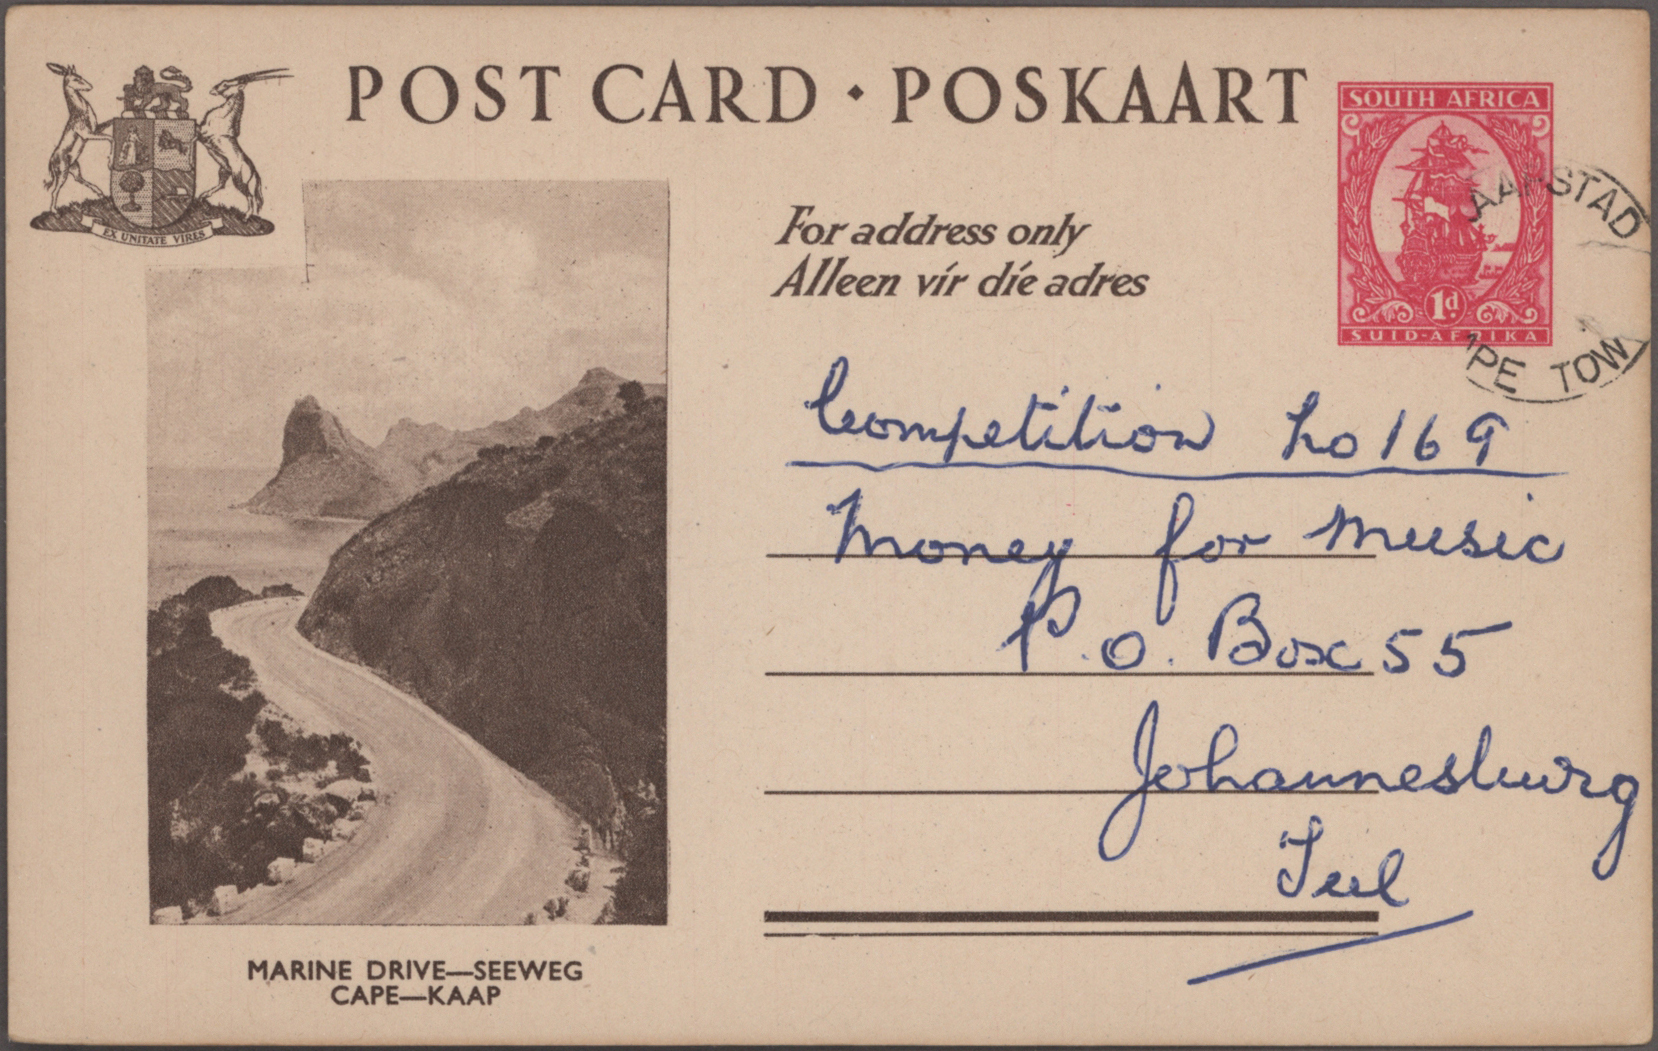 POST CARD · POSKAART
EX UNITATE VIRES
SOUTH AFRICA
1d
SUID-AFRIKA
AAPSTAD
PE TOW
For address only
Alleen vir die adres
Competition No 169
Money for Music
P.O. Box 55
Johannesburg
MARINE DRIVE—SEEWEG
CAPE—KAAP